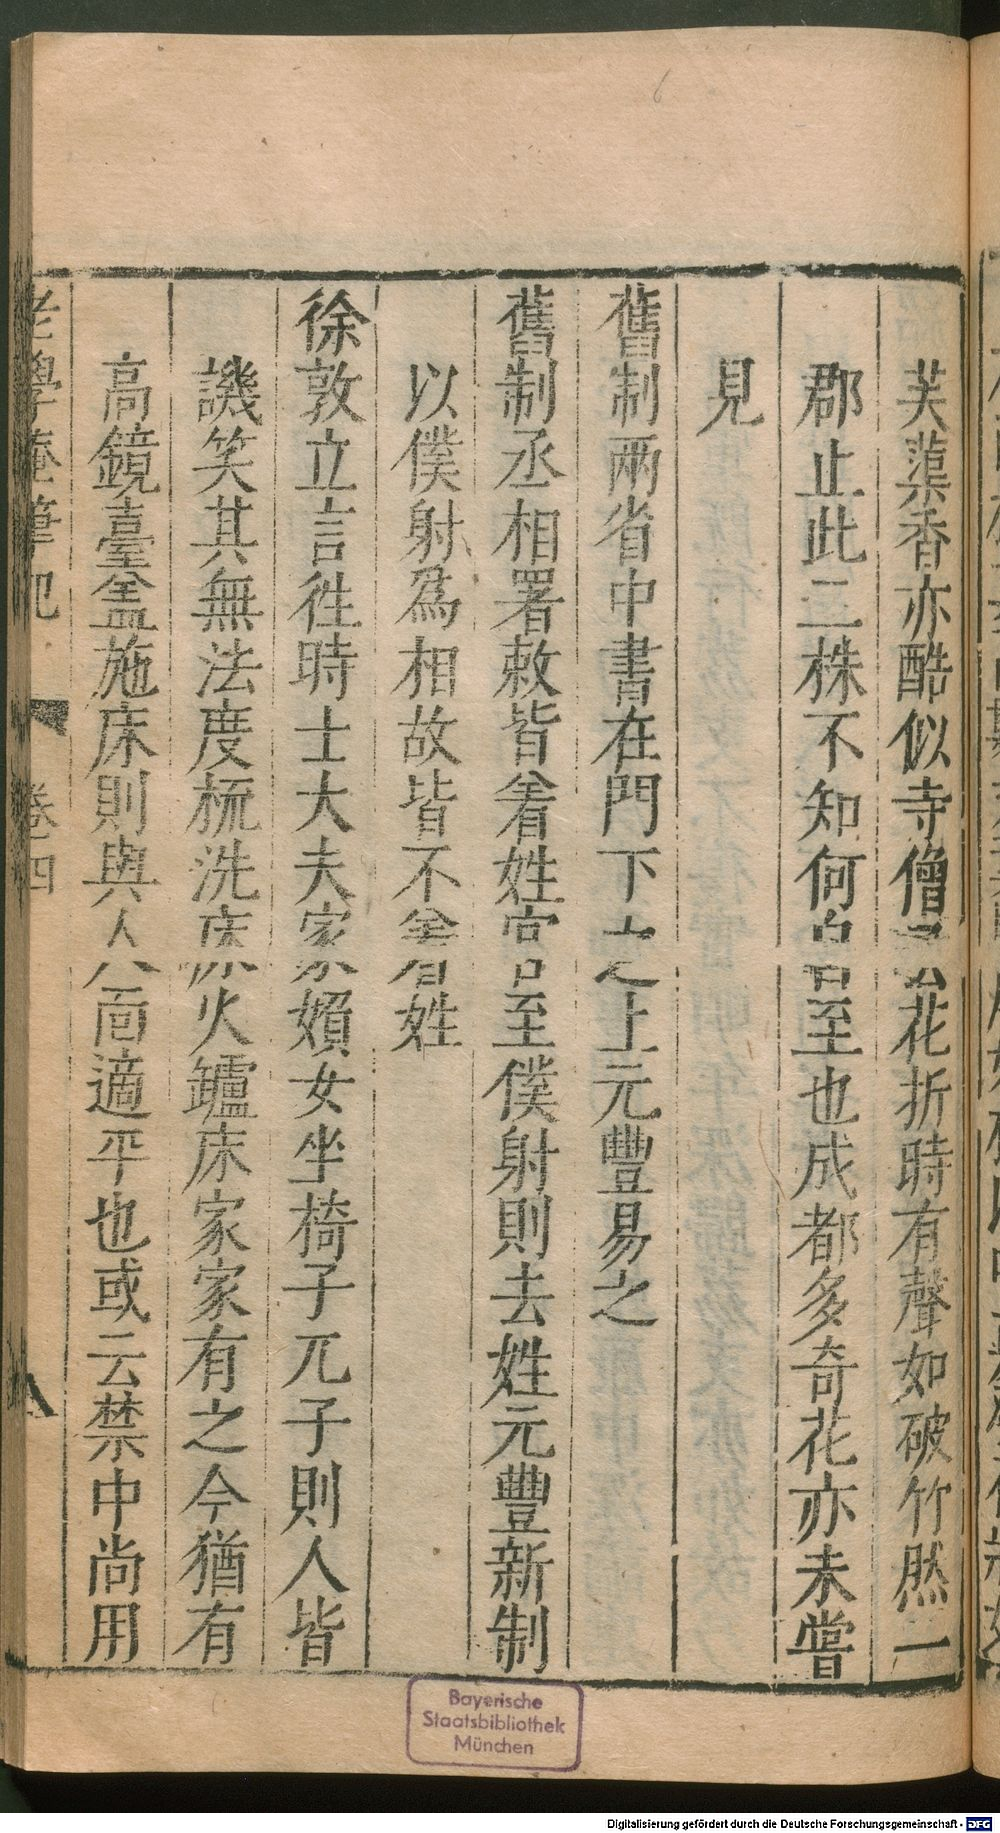 芙蕖香亦酷似寺僧云花折時有聲如破竹然一
郡止此二株不知何自至也成都多奇花亦未嘗
見
舊制兩省中書在門下之上元豐易之
舊制丞相署敕皆着姓官至僕射則去姓元豐新制
以僕射爲相故皆不着姓
徐敦立言徃時士大夫家婦女坐椅子兀子則人皆
譏笑其無法度梳洗床火鑪床家家有之今猶有
高鏡臺盖施床則與人面適平也或云禁中尚用
老學庵筆記 卷四
Bayerische
Staatsbibliothek
München
Digitalisierung gefördert durch die Deutsche Forschungsgemeinschaft - DFG